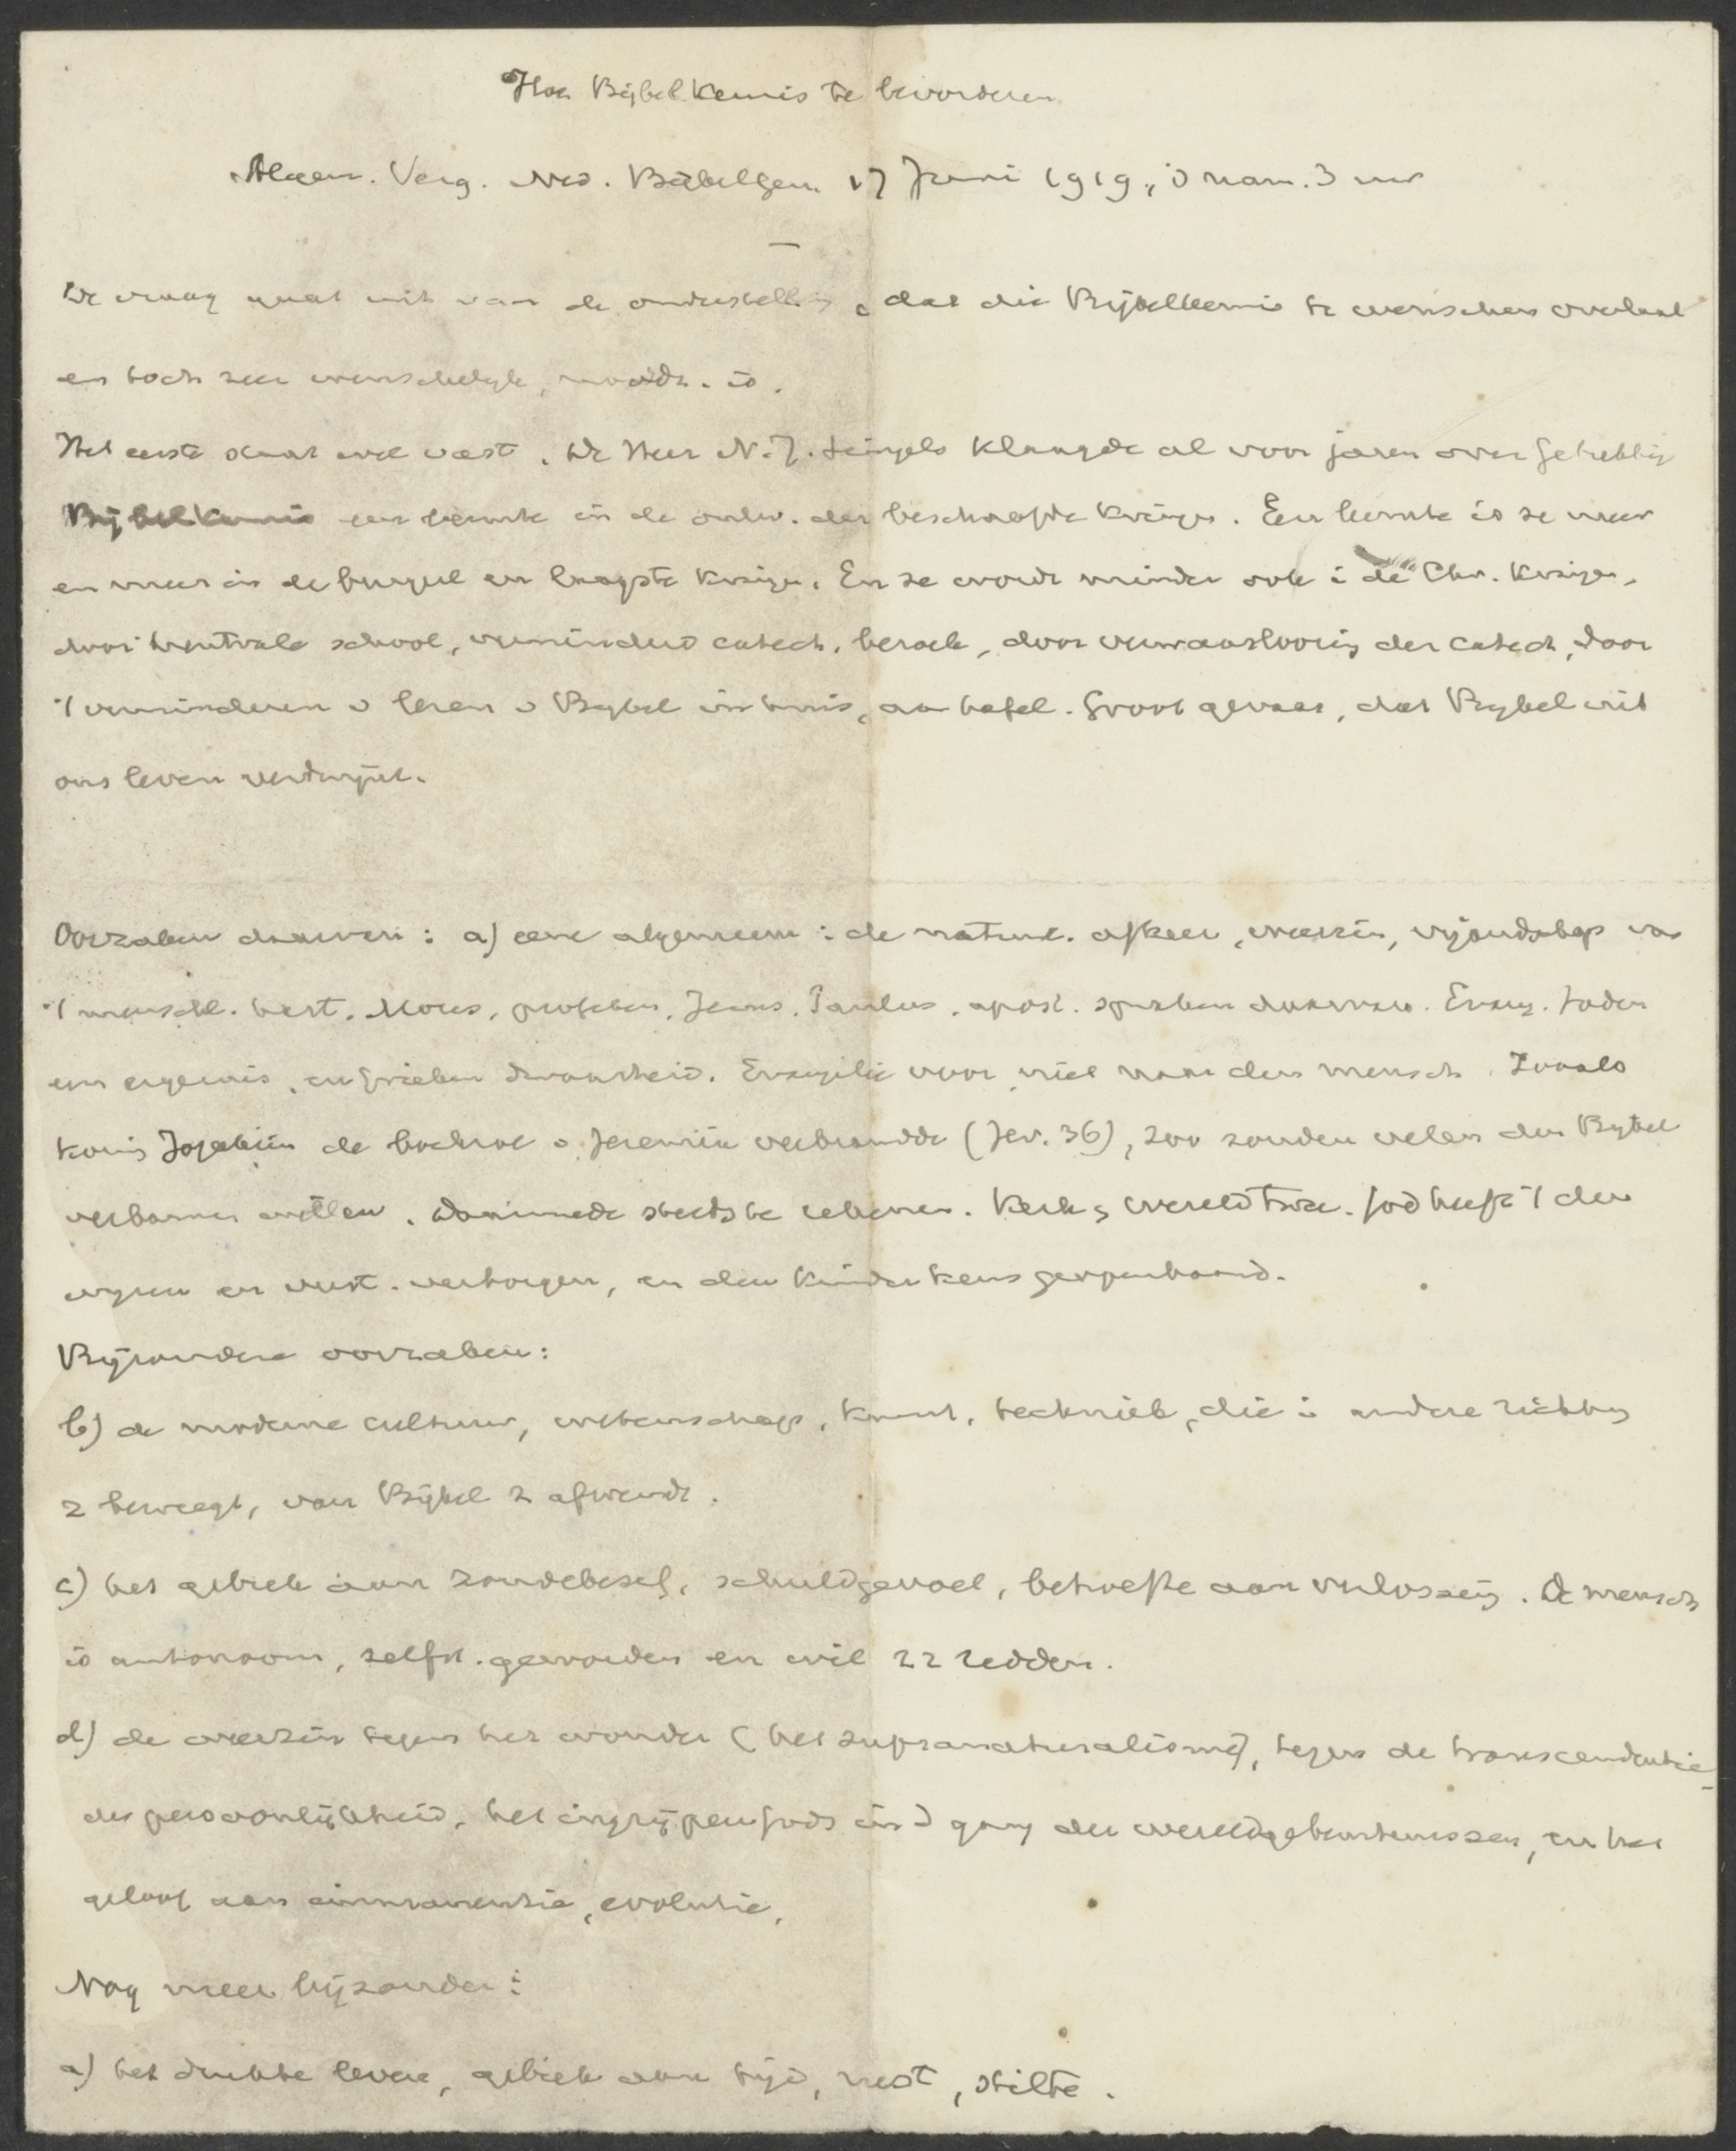 Hoe Bijbelkennis te bevorderen
Algem. Verg. Ned. Bijbelgen. 17 Juni 1919, 's nam. 3 uur
De vraag gaat uit van de onderstelling, dat die Bijbelkennis te wenschen overlaat
en toch zeer wenschelijk, noodz. is.
Het eerste staat wel vast. De Heer N.J. klaagde al voor jaren over gebrekkige
Bijbelkennis een leemte in de ontw. der beschaafde kringen. Een leemte is ze meer
en meer in de burgerl en laagste kringen. En ze wordt minder ook i de Chr. kringen,
door neutrale school, verminderd catech. bezoek, door verwaarloozing der catech, door
't verminderen v lezen v Bijbel in huis, aan tafel. Groot gevaar, dat Bijbel uit
ons leven verdwijnt.
Oorzaken daarvan: a) eene algemeene: de natuurl. afkeer, weerzin, vijandschap van
't menschl. hart. Mozes, profeten, Jezus, Paulus, apost. spraken daarvan. Evang. Joden
een ergernis, en Grieken dwaasheid. Evangelie voor, niet naar den mensch. Zooals
koning Jojakim de boekrol v Jeremia verbrandde (Jer. 36), zoo zouden velen den Bijbel
verbannen willen. Daarmede steeds te rekenen. Kerk & wereld twee. God heeft 't den
wijzen en verst. verborgen, en den kinderkens geopenbaard.
Bijzondere oorzaken:
b) de moderne cultuur, wetenschap, kunst, techniek, die i andere richting
z beweegt, van Bijbel z afwendt.
c) het gebrek aan zondebesef, schuldgevoel, behoefte aan verlossing. De mensch
is autonoom, zelfst. geworden en wil zz redden.
d) de weerzin tegen het wonder (het supranaturalisme), tegen de transcendentie
der persoonlijkheid, het ingrijpen Gods in d gang der wereldgebeurtenissen, en het
geloof aan immanentie, evolutie,
Nog meer bijzonder:
a) het drukke leven, gebrek aan tijd, rust, stilte.